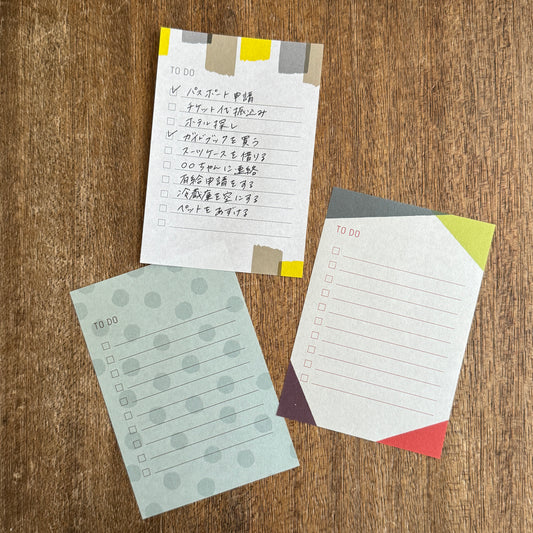 TO DO
パスポート申請
チケット代振込み
ホテル探し
ガイドブックを買う
スーツケースを借りる
○○ちゃんに連絡
有給申請をする
冷蔵庫を空にする
ペットをあずける
TO DO
TO DO